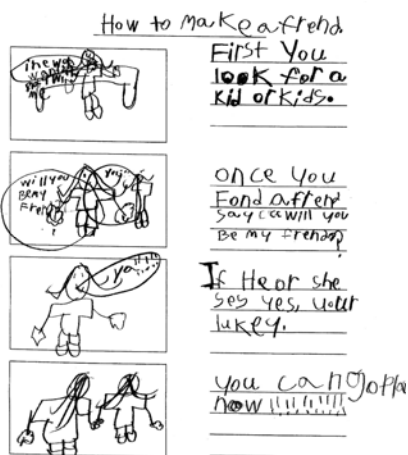 How to make a frend
First You
look for a
Kid or kids.
will you
BE my
Fren
once You
Fond a frend
say will you
Be my frend?
If He or she
ses yes, your
lukey.
you can go pla
now !!!!!!!!!